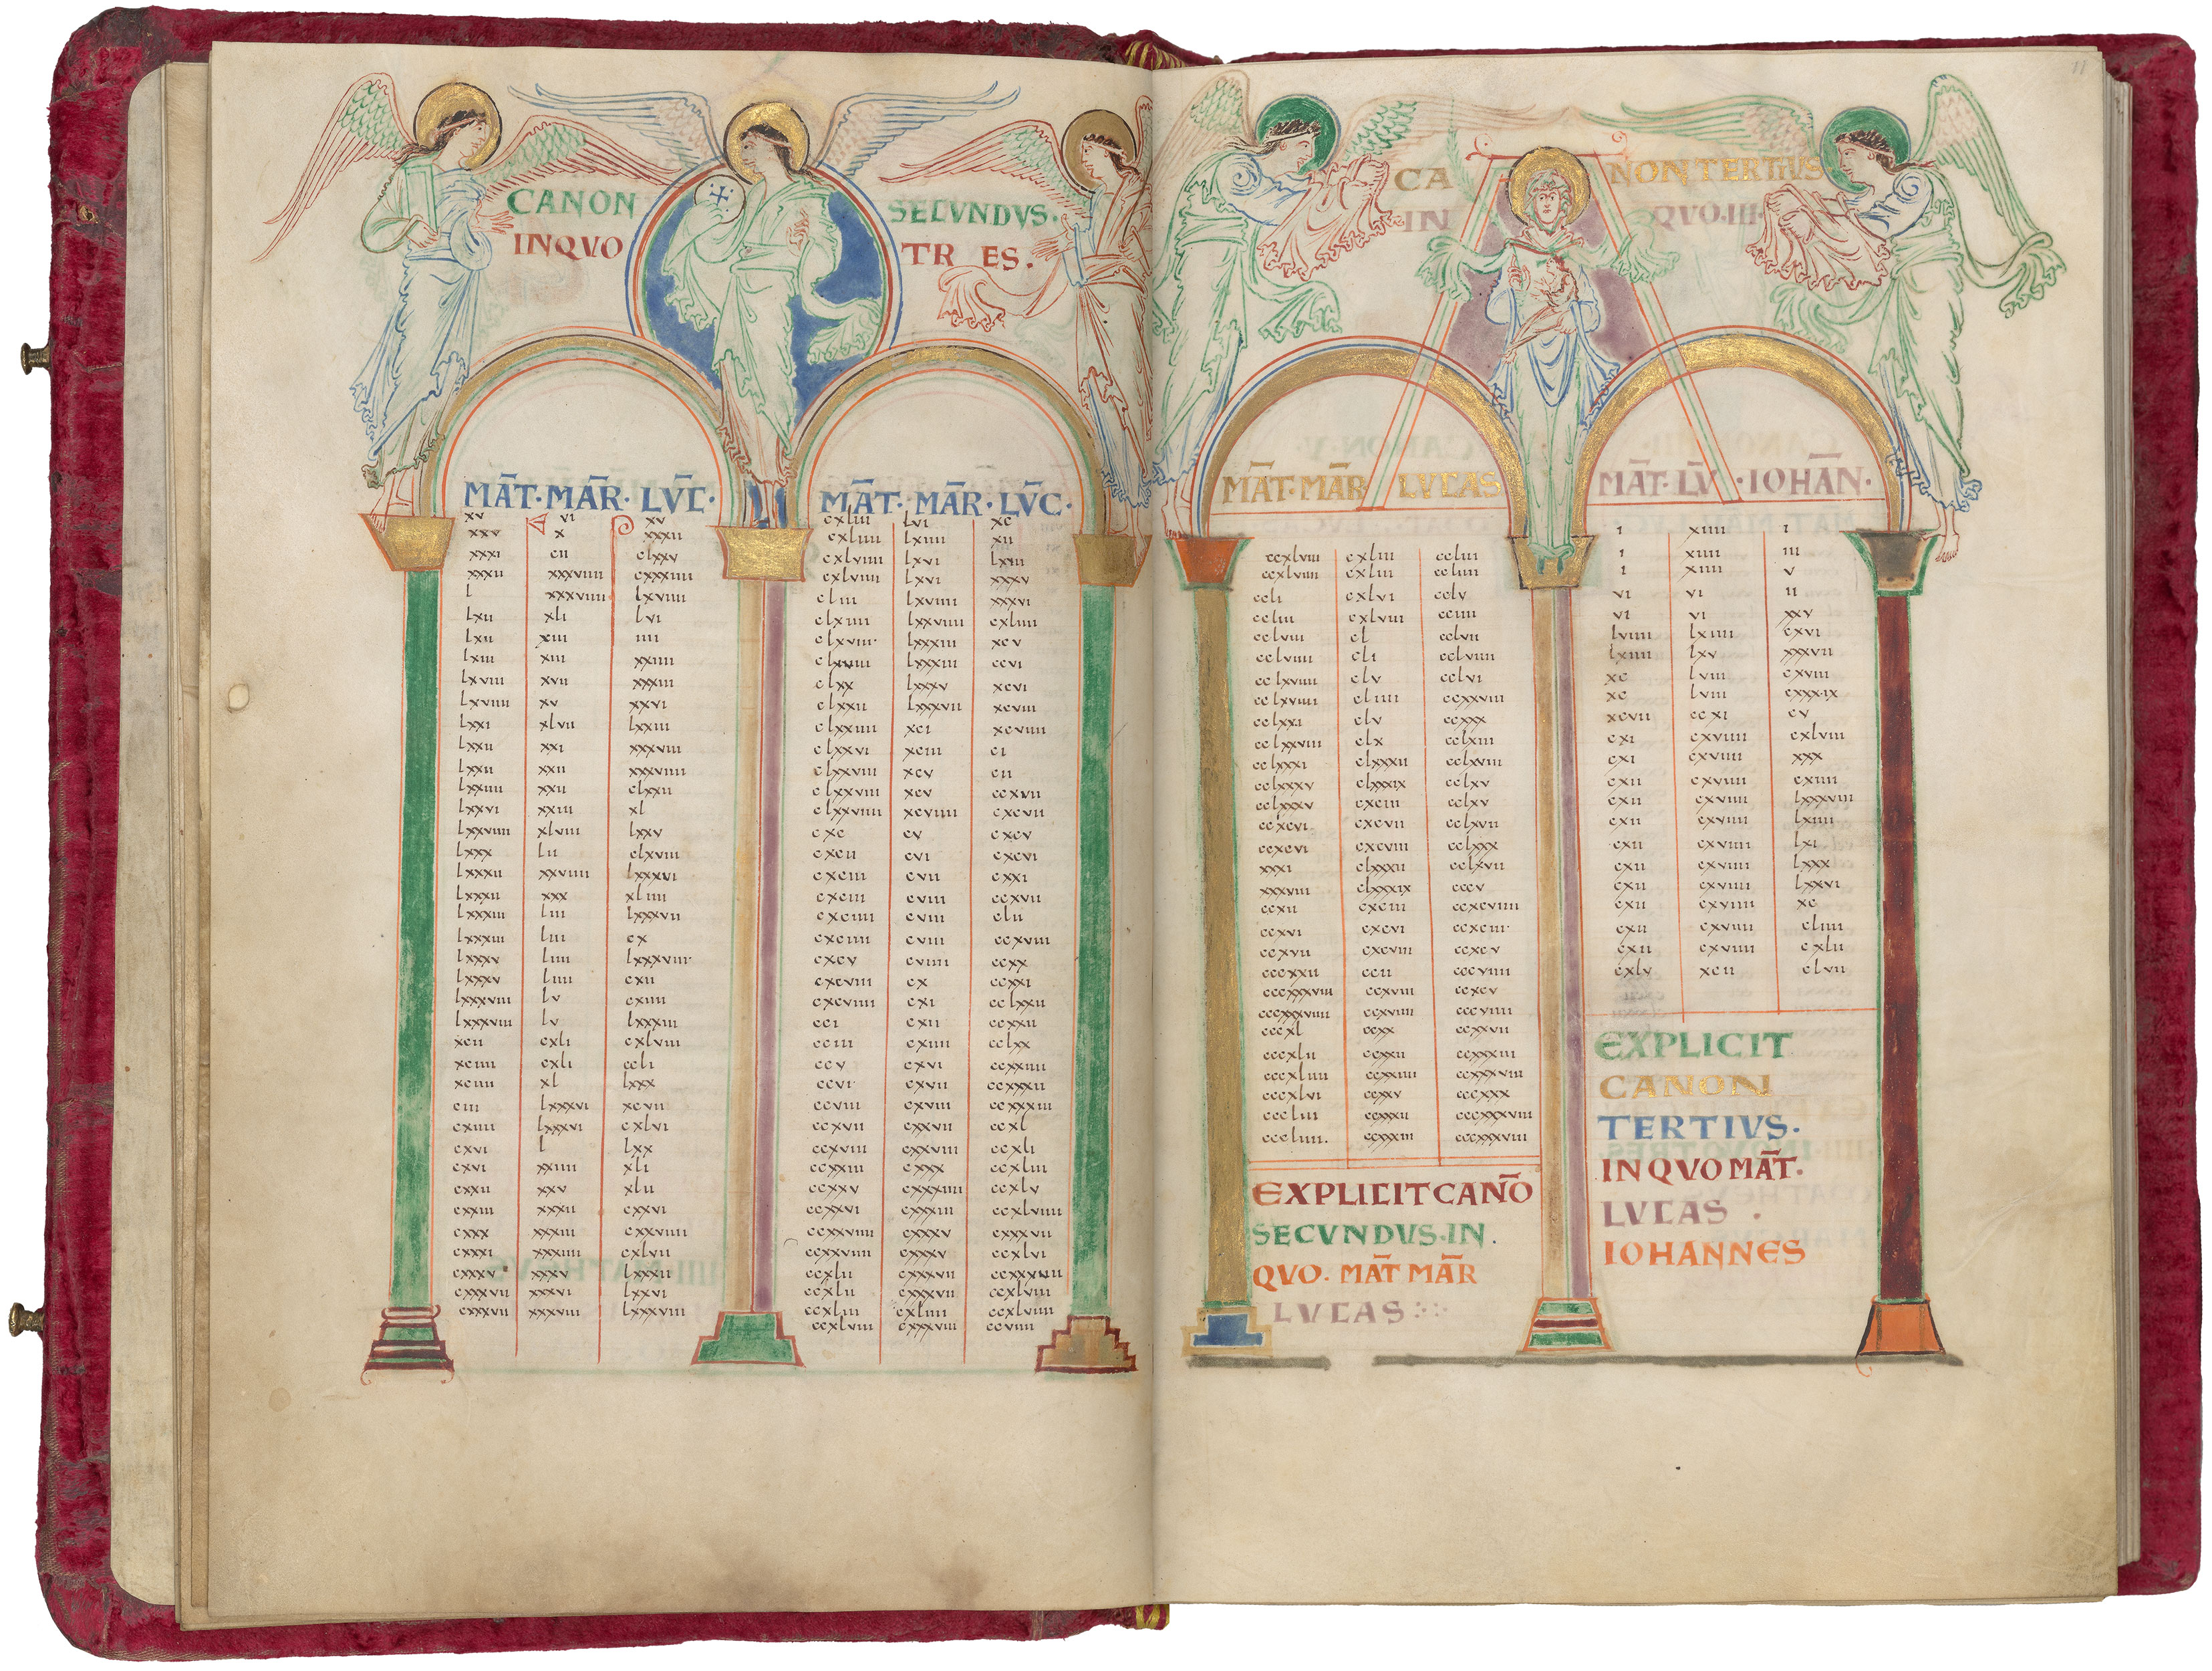 CANON SECVNDVS.
INQVO TR ES.
MA̅T·MA̅R·LV̅C·
xv vi xv
xxv x xxxii
xxxi cii clxxv
xxxii xxxviiii cxxxiiii
l xxxviiii lxviiii
lxii xli lvi
lxii xiii iiii
lxiii xiii xxiiii
lxviii xvii xxxiii
lxviiii xv xxvi
lxxi xlvii lxxiii
lxxii xxi xxxviii
lxxii xxii xxxviiii
lxxiiii xxii clxxii
lxxvi xxiiii xl
lxxviiii xlviii lxxv
lxxx lii clxviii
lxxxii xxviiii lxxxvi
lxxxii xxx xliiii
lxxxiii liii lxxxvii
lxxxiii liii cx
lxxxv liiii lxxxviii·
lxxxv liiii cxii
lxxxviii lv cxiiii
lxxxviii lv lxxxiii
xcii cxli cxlviii
xciiii cxli ccli
xciiii xl lxxx
ciii lxxxvi xcvii
cxiiii lxxxvi cxlvi
cxvi l lxx
cxvi xxiiii xli
cxxii xxv xlii
cxxiii xxxii cxxvi
cxxx xxxiii cxxviiii
cxxxi xxxiiii cxlvii
cxxxv xxxv lxxxii
cxxxvii xxxvi lxxvi
cxxxvii xxxviii lxxxviii
MA̅T· MA̅R· LV̅C·
cxliii lvi xc
cxliiii lxiiii xii
cxlviiii lxvi lxiii
cxlviiii lxvi xxxv
cliii lxviiii xxxvi
clxiiii lxxviiii cxliiii
clxviii· lxxxiii xcv
lxxxiii ccvi
clxx lxxxv xcvi
clxxii lxxxvii xcviii
clxxiiii xci xcviiii
clxxvi xciii ci
clxxviii xcv cii
clxxviii xcv ccxvii
clxxviiii xcviiii cxcvii
cxc cv cxcv
cxcii cvi cxcvi
cxciii cvii cxxi
cxciii cviii ccxvii
cxciiii cviii clii
cxciiii cviii ccxviii
cxcv cviiii ccxx
cxcviii cx ccxxi
cxcviiii cxi cclxxii
cci cxii ccxxii
cciii cxiiii cclxx
ccv cxvi ccxxiiii
ccvi cxvii ccxxxii
ccviii cxviii ccxxxiii
ccxvii cxxvii ccxl
ccxviii cxxviii ccxli
ccxxiii cxxx ccxliii
ccxxv cxxxiiii ccxlv
ccxxvi cxxxiii ccxlviiii
ccxxviiii cxxxv cxxxvii
ccxxviiii cxxxv ccxlvi
ccxlii cxxxvii ccxxxvii
ccxlii cxxxvii ccxlviii
ccxliii cxliiii ccxlviiii
ccxlviii cxxxviii ccviiii
11
CA NON TERTIUS
IN QVO·III·
MA̅T·MA̅R LVCAS
ccxlviii cxliii ccliii
ccxlviiii cxliii ccliiii
ccli cxlvi cclv
ccliii cxlviii cciiii
cclviii cl cclvii
cclviiii cli cclviiii
cclxviiii clv cclvi
cclxviiii cliiii ccxxviii
cclxxi clv ccxxx
cclxxviii clx cclxiii
cclxxxi clxxxii cclxviii
cclxxxv clxxxix cclxv
cclxxxv cxciii cclxv
ccxcvi cxcvii cclxvii
ccxcvi cxcviii cclxxx
xxxi clxxxii cclxvii
xxxviii clxxxix cccv
ccxii cxciii ccxcviiii
ccxvi cxcvi ccxciii·
ccxvii cxcviii ccxcv
cccxxii ccii cccviiii
cccxxxviii ccxviii ccxcv
cccxxxviiii ccxviiii cccviiii
cccxl ccxx ccxxvii
cccxlii ccxxii ccxxxiii
cccxliiii ccxxiiii ccxxxviii
cccxlvi ccxxv cccxxx
cccliii ccxxxii cccxxxviii
cccliiii. ccxxxiii cccxxxviii
EXPLICIT CANO̅
SECVNDVS·IN.
QVO· MA̅T MA̅R
LVCAS
MA̅T·LV̅·IOHA̅N·
i xiiii i
i xiiii iii
i xiiii v
vi vi ii
vi vi xxv
lviiii lxiiii cxvi
lxiiii lxv xxxvii
xc lviii cxviii
xc lviii cxxxix
xcvii ccxi cv
cxi cxviiii cxlviii
cxi cxviiii xxx
cxii cxviiii cxiiii
cxii cxviiii lxxxviii
cxii cxviiii lxiiii
cxii cxviiii lxi
cxii cxviiii lxxx
cxii cxviiii lxxvi
cxii cxviiii xc
cxii cxviiii cliiii
cxii cxviiii cxlii
cxlv xcii clvii
EXPLICIT
CANON
TERTIVS·
INQVO MA̅T·
LVCAS ·
IOHANNES